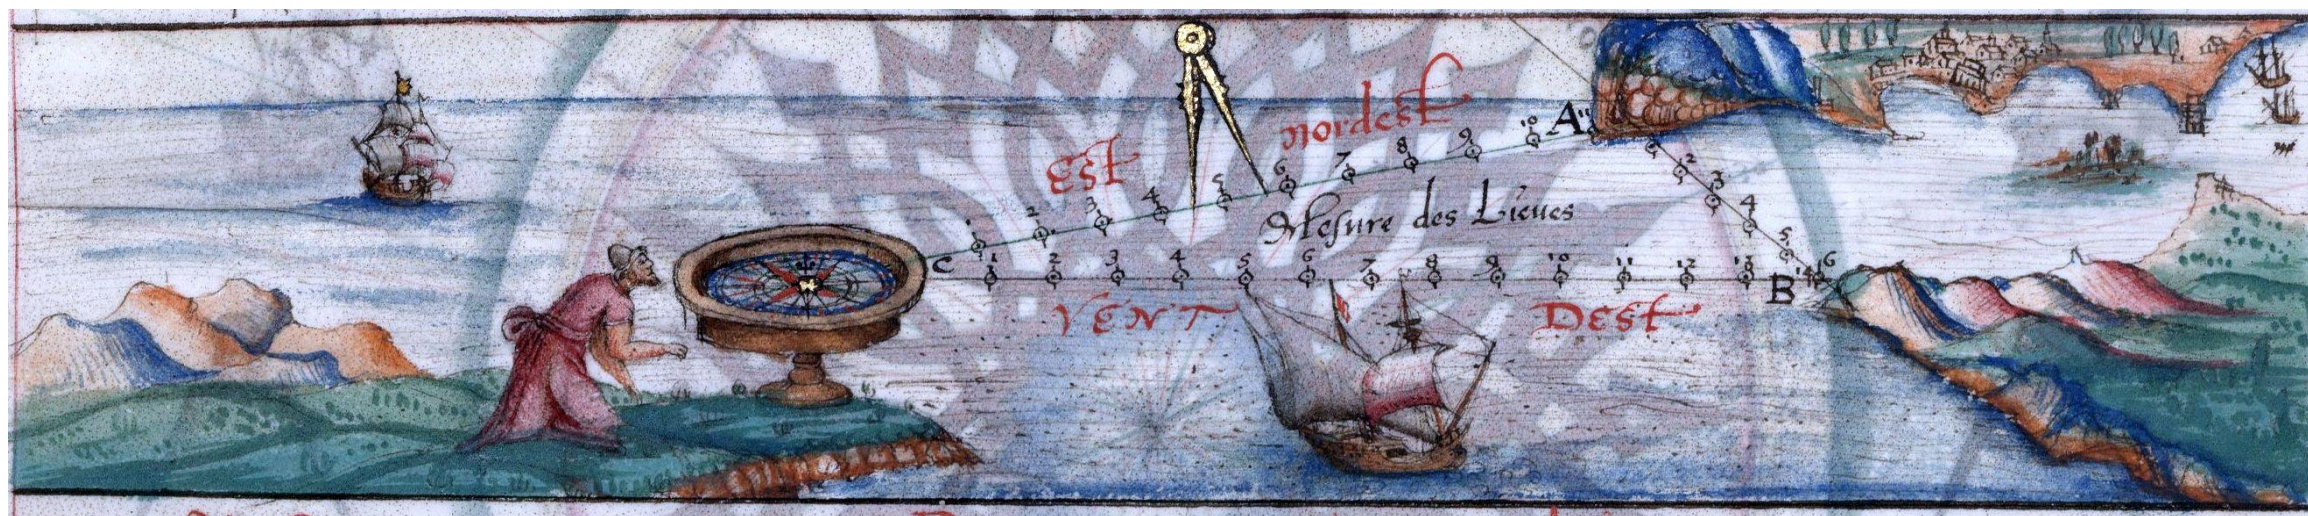 Est nordest
1 2 3 4 5 6 7 8 9 10 A 11
Mesure des Lieues
2 3 4 5 6
C 1 2 3 4 5 6 7 8 9 10 11 12 13 B 14
VENT DEst